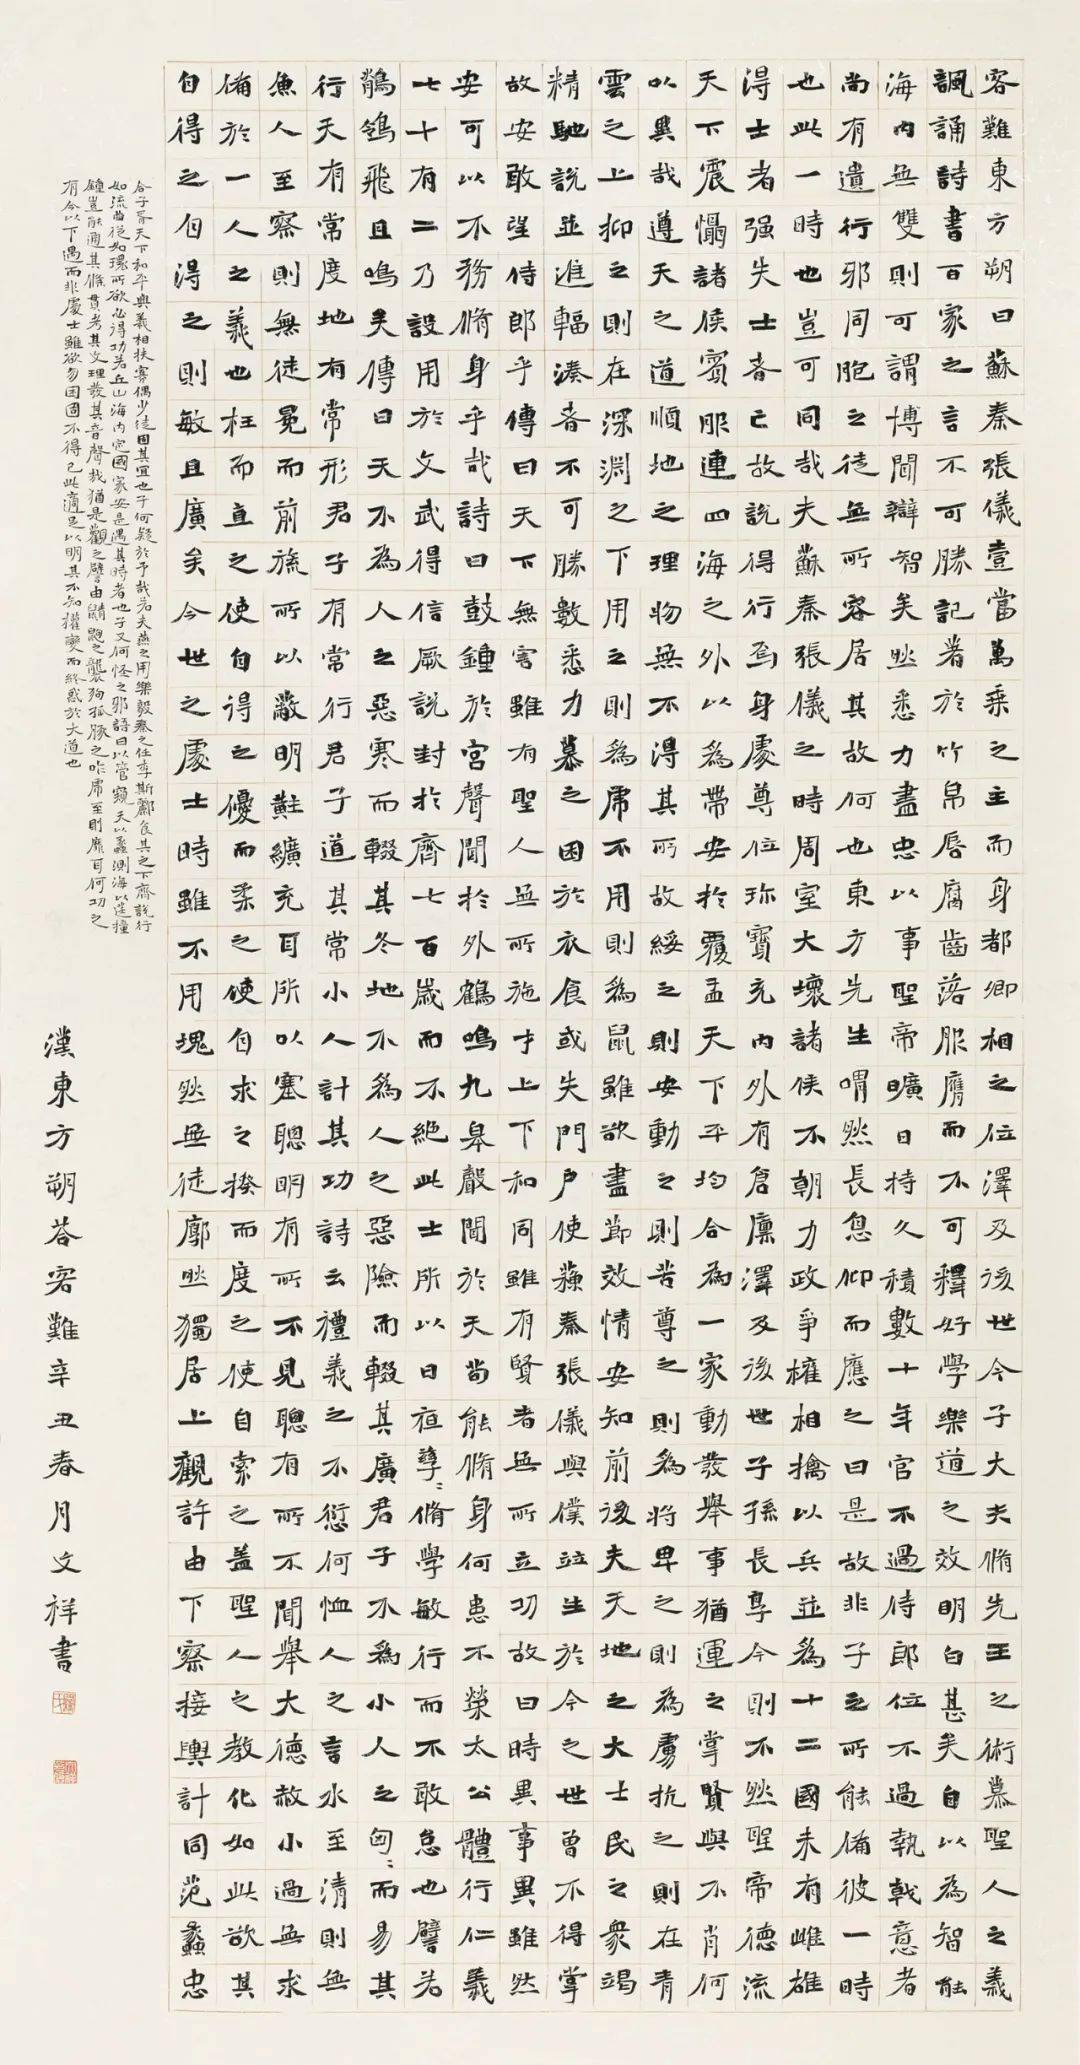 客難東方朔曰蘇秦張儀壹當萬乘之主而身都卿相之位澤及後世今子大夫脩先王之術慕聖人之義
諷誦詩書百家之言不可勝記著於竹帛唇腐齒落服膺而不可釋好學樂道之效明白甚矣自以為智能
海內無雙則可謂博聞辯智矣然悉力盡忠以事聖帝曠日持久積數十年官不過侍郎位不過執戟意者
尚有遺行邪同胞之徒無所容居其故何也東方先生喟然長息仰而應之曰是故非子之所能備彼一時
也此一時也豈可同哉夫蘇秦張儀之時周室大壞諸侯不朝力政爭權相擒以兵並為十二國未有雌雄
得士者强失士者亡故說得行焉身處尊位珍寶充內外有倉廩澤及後世子孫長享今則不然聖帝德流
天下震慴諸侯賓服連四海之外以為帶安於覆盂天下平均合為一家動發舉事猶運之掌賢與不肖何
以異哉遵天之道順地之理物無不得其所故綏之則安動之則苦尊之則為將卑之則為虜抗之則在青
雲之上抑之則在深淵之下用之則為虎不用則為鼠雖欲盡節效情安知前後夫天地之大士民之衆竭
精馳說並進輻湊者不可勝數悉力慕之困於衣食或失門戶使蘇秦張儀與僕竝生於今之世曾不得掌
故安敢望侍郎乎傳曰天下無害雖有聖人無所施才上下和同雖有賢者無所立功故曰時異事異雖然
安可以不務脩身乎哉詩曰鼓鍾於宮聲聞於外鶴鳴九皋聲聞於天苟能脩身何患不榮太公體行仁義
七十有二乃設用於文武得信厥說封於齊七百歲而不絕此士所以日夜孳〻脩學敏行而不敢怠也譬若
鶺鴒飛且鳴矣傳曰天不為人之惡寒而輟其冬地不為人之惡險而輟其廣君子不為小人之匈〻而易其
行天有常度地有常形君子有常行君子道其常小人計其功詩云禮義之不愆何恤人之言水至清則無
魚人至察則無徒冕而前旒所以蔽明黈纊充耳所以塞聰明有所不見聰有所不聞舉大德赦小過無求
備於一人之義也枉而直之使自得之優而柔之使自求之揆而度之使自索之蓋聖人之教化如此欲其
自得之自得之則敏且廣矣今世之處士時雖不用塊然無徒廓然獨居上觀許由下察接輿計同范蠡忠
合子胥天下和平與義相扶寡偶少徒固其宜也子何疑於予哉若夫燕之用樂毅秦之任李斯酈食其之下齊說行
如流曲從如環所欲必得功若丘山海內定國家安是遇其時者也子又何怪之邪語曰以管窺天以蠡測海以莛撞
鐘豈能通其條貫考其文理發其音聲哉猶是觀之譬由鼱鼩之襲狗孤豚之咋虎至則靡耳何功之
有今以下愚而非處士雖欲勿困固不得已此適足以明其不知權變而終惑於大道也
漢東方朔荅客難辛丑春月文祥書